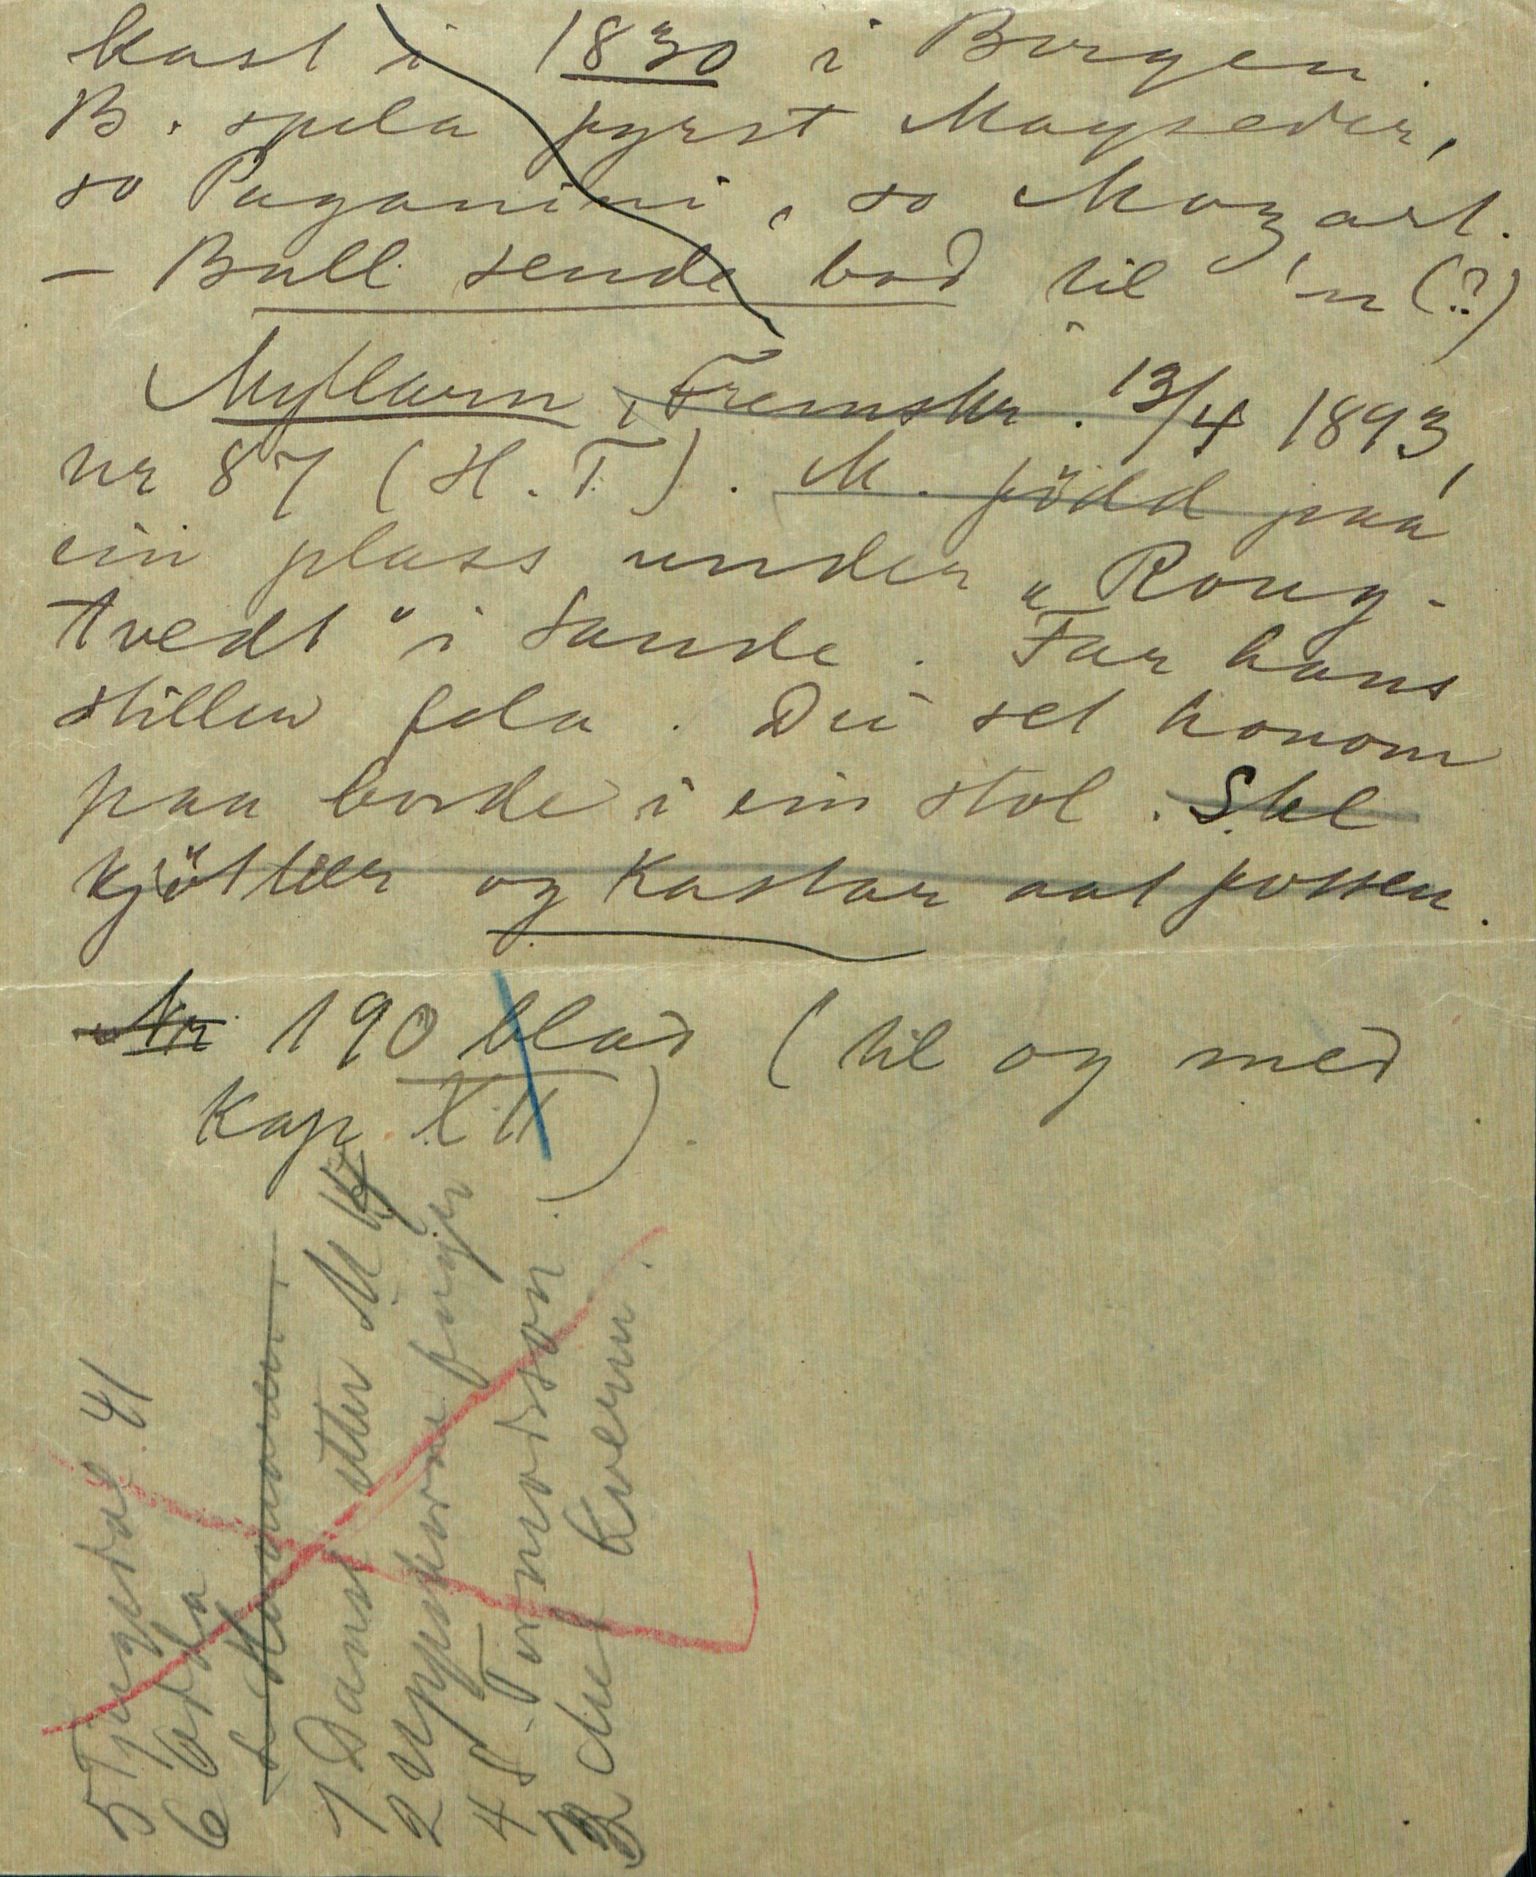 kast i 1830 i Bergen.
B. spela fyrst Mayseder,
so Paganini, so Mozart.
— Bull sende bod til 'n (?)
Myllarn, Fremskr. 13/4 1893,
nr 87 (H. T). M. född paa
ein plass under „Rong-
tvedt" i Sande. Far hans
stillew fela. Dei set honom
paa borde i ein stol. Skl
kjöttær og kastar aat possen.
Nr 190 blad (til og med
Kap. XII).
5 Tjugedal 41
6 Odda
1 Dans etter M
2 Uppskorne fingjer
4 S. Tormodsson.
3 die Kvernn.